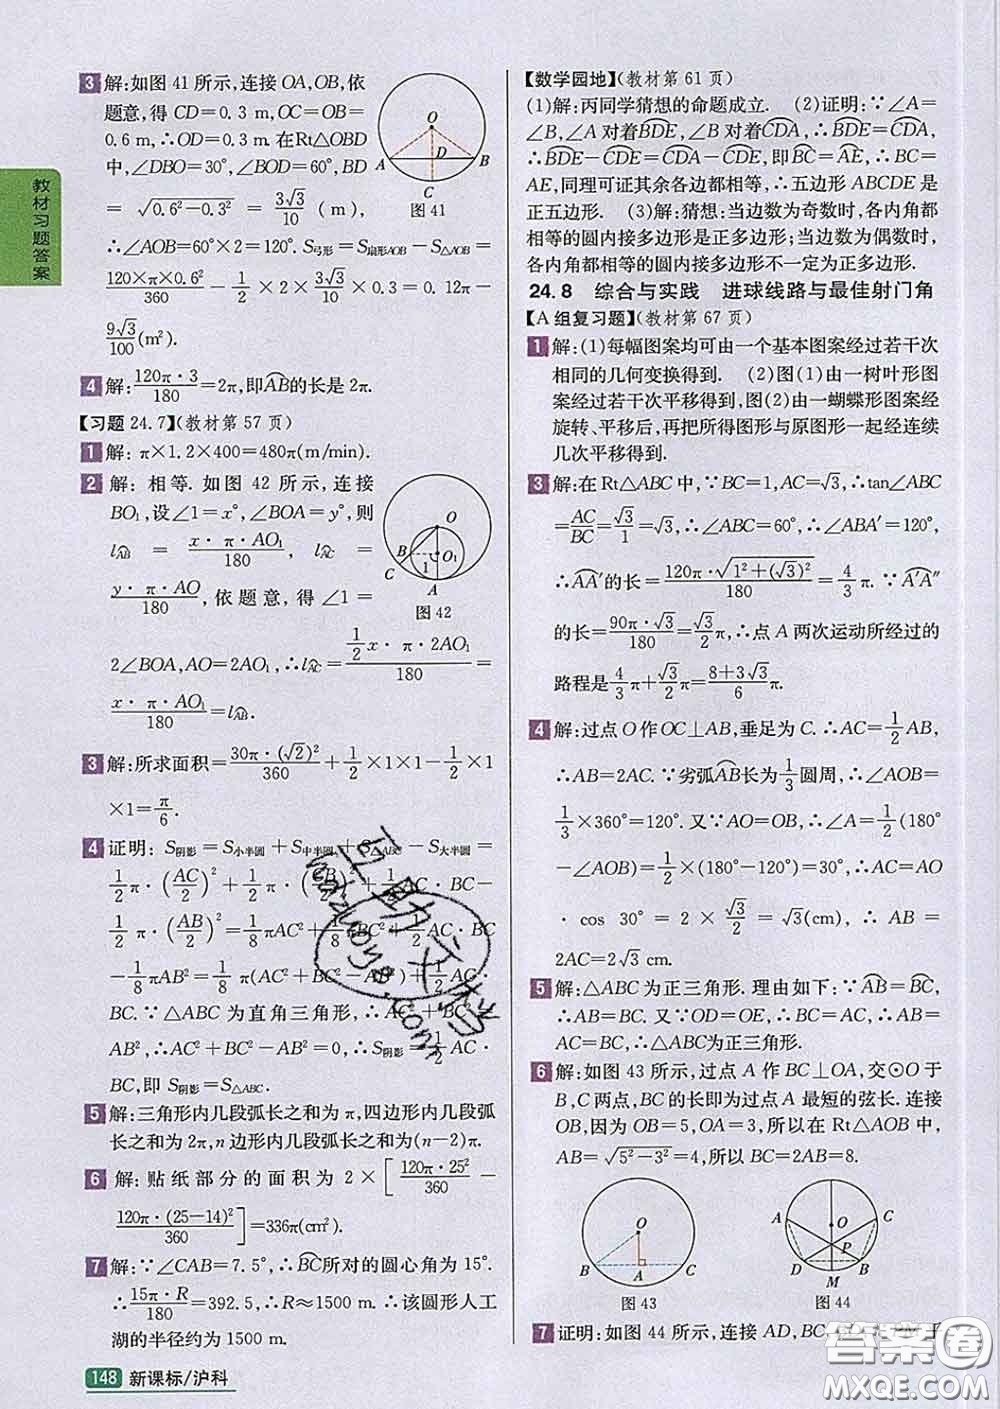 教材习题答案
3 解:如图 41 所示,连接 OA,OB,依
题意,得 CD=0.3 m,OC=OB=
0.6 m,∴OD=0.3 m. 在Rt△OBD
中,∠DBO=30°,∠BOD=60°,BD
=√(0.6²-0.3²)=3√3/10 (m),
∴∠AOB=60°×2=120°. S弓形=S扇形AOB-S△AOB=
120×π×0.6²/360-1/2×2×3√3/10×0.3=0.12π-
9√3/100(m²).
O
A
D
B
C
图 41
4 解:120π·3/180=2π,即AB⌒的长是 2π.
【习题 24.7】(教材第 57 页)
1 解:π×1.2×400=480π(m/min).
2 解:相等. 如图 42 所示,连接
BO₁,设∠1=x°,∠BOA=y°,则
l_AB⌒ = x·π·AO₁/180, l_AC⌒ =
y·π·AO/180,依题意,得∠1=
2∠BOA,AO=2AO₁,∴l_AC⌒=(1/2 x·π·2AO₁)/180=
x·π·AO₁/180=l_AB⌒.
O
B
O₁
1
C
A
图 42
3 解:所求面积=30π·(√2)²/360+1/2×1×1-1/2×1
×1=π/6.
4 证明:S阴影=S小半圆+S中半圆+S△ABC-S大半圆=
1/2π·(AC/2)²+1/2π·(CB/2)²+1/2AC·BC-
1/2π·(AB/2)²=1/8πAC²+1/8πBC²+1/2AC·BC
-1/8πAB²=1/8π(AC²+BC²-AB²)+1/2AC·
BC.∵△ABC 为直角三角形,∴AC²+BC²=
AB²,∴AC²+BC²-AB²=0,∴S阴影=1/2AC·
BC,即 S阴影=S△ABC.
5 解:三角形内几段弧长之和为 π,四边形内几段弧
长之和为 2π,n 边形内几段弧长之和为(n-2)π.
6 解:贴纸部分的面积为 2×[120π·25²/360-
120π·(25-14)²/360]=336π(cm²).
7 解:∵∠CAB=7.5°,∴BC⌒所对的圆心角为 15°.
∴15π·R/180=392.5,∴R≈1500 m.∴该圆形人工
湖的半径约为 1500 m.
148 新课标/沪科
【数学园地】(教材第 61 页)
(1)解:丙同学猜想的命题成立. (2)证明:∵∠A=
∠B,∠A 对着BDE⌒,∠B 对着CDA⌒,∴BDE⌒=CDA⌒,
∴BDE⌒-CDE⌒=CDA⌒-CDE⌒,即BC⌒=AE⌒,∴BC=
AE,同理可证其余各边都相等,∴五边形 ABCDE 是
正五边形. (3)解:猜想:当边数为奇数时,各内角都
相等的圆内接多边形是正多边形;当边数为偶数时,
各内角都相等的圆内接多边形不一定为正多边形.
24.8 综合与实践 进球线路与最佳射门角
【A 组复习题】(教材第 67 页)
1 解:(1)每幅图案均可由一个基本图案经过若干次
相同的几何变换得到. (2)图(1)由一树叶形图
案经过若干次平移得到,图(2)由一蝴蝶形图案经
旋转、平移后,再把所得图形与原图形一起经连续
几次平移得到.
3 解:在 Rt△ABC 中,∵BC=1,AC=√3,∴tan∠ABC
=AC/BC=√3/1=√3,∴∠ABC=60°,∴∠ABA′=120°,
∴AA′⌒的长=120π·√(1²+(√3)²)/180=4/3π.∵A′A″⌒
的长=90π·√3/180=√3/2π,∴点 A 两次运动所经过的
路程是4/3π+√3/2π=(8+3√3)/6π.
4 解:过点 O 作 OC⊥AB,垂足为 C.∴AC=1/2AB,
∴AB=2AC.∵劣弧AB⌒长为1/3圆周,∴∠AOB=
1/3×360°=120°.又∵AO=BO,∴∠A=1/2(180°
-∠AOB)=1/2×(180°-120°)=30°.∴AC=AO
·cos 30°=2×√3/2=√3(cm),∴AB=
2AC=2√3 cm.
5 解:△ABC 为正三角形. 理由如下:∵AB⌒=BC⌒,
∴AB=BC.又∵OD=OE,∴BC=AC,∴AB=
AC=BC,∴△ABC为正三角形.
6 解:如图 43 所示,过点 A 作 BC⊥OA,交⊙O 于
B,C 两点,BC 的长即为过点 A 最短的弦长. 连接
OB,因为 OB=5,OA=3,所以在 Rt△AOB 中,
AB=√(5²-3²)=4,所以 BC=2AB=8.
O
B
A
C
图 43
A
O
C
P
D
M
B
图 44
7 证明:如图 44 所示,连接 AD,BC,
答案圈
MXQE.COM